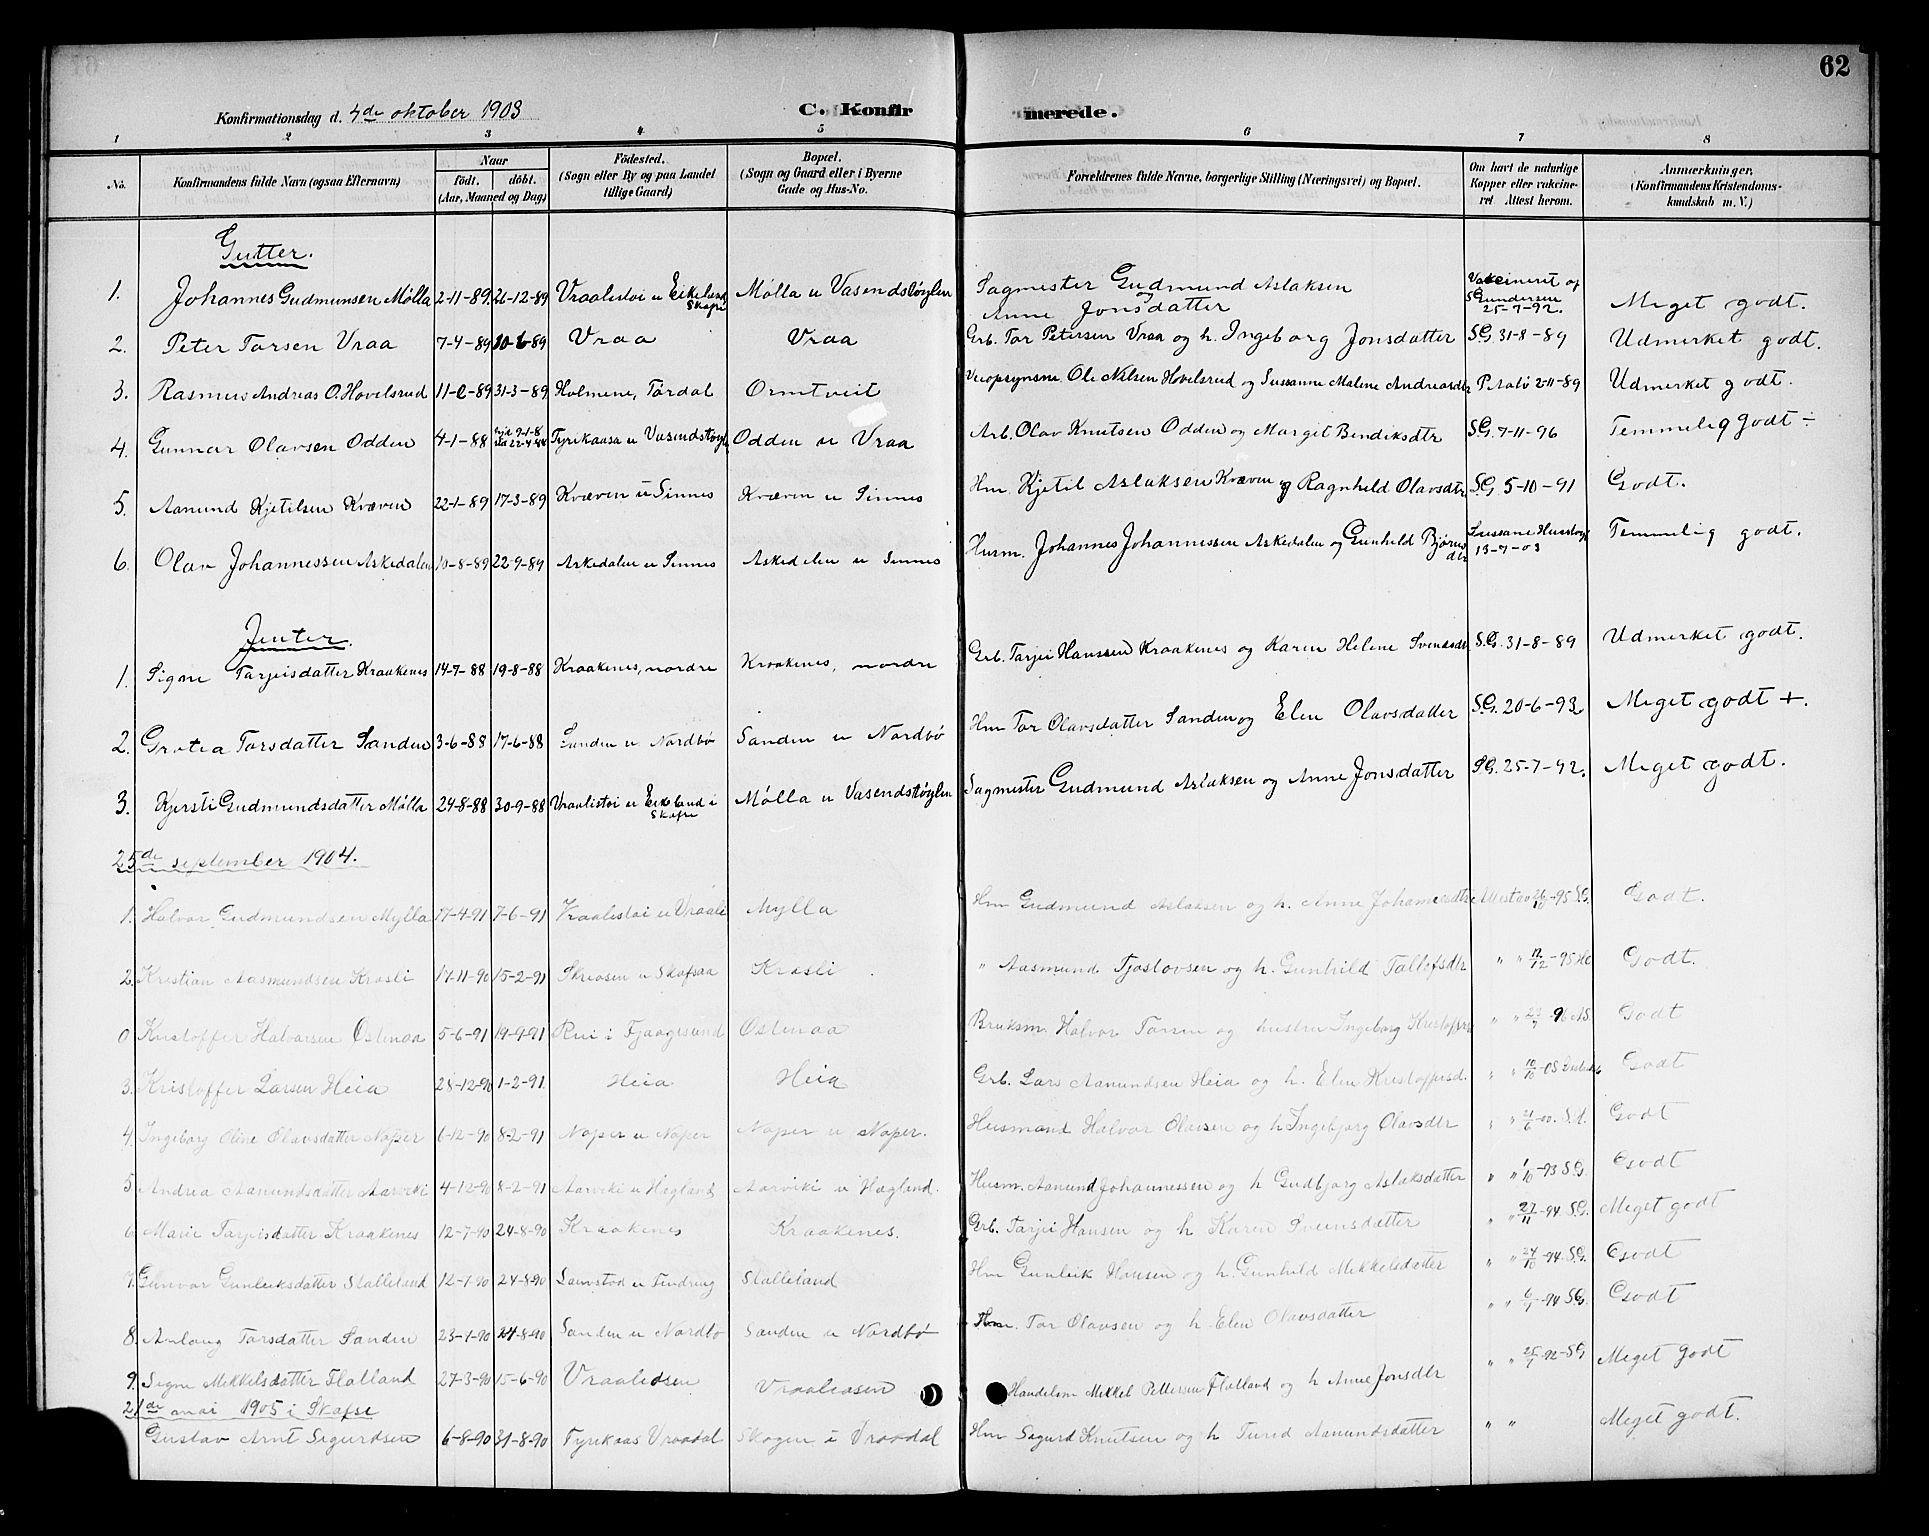 62
Konfirmationsdag d. 4de oktober 1903
C. Konfirmerede.
1 2 3 4 5 6 7 8
No. Konfirmandens fulde Navn (ogsaa Efternavn) Naar født. døbt. (Aar, Maaned og Dag) Fødested. (Sogn eller By og paa Landet tillige Gaard) Bopæl. (Sogn og Gaard eller i Byerne Gade og Hus-No. Forældrenes fulde Navne, borgerlige Stilling (Næringsvei) og Bopæl. Om havt de naturlige Kopper eller vakcineret Attest herom. Anmærkninger. (Konfirmandens Kristendomskundskab m. V.)
Gutter.
1. Johannes Gudmunsen Mølla 2-11-89. 26-12-89 Vraalistøi u Eikeland Skafse Mølla u Vasendstøylen Sagmester Gudmund Aslaksen og Anne Jonsdatter Vakcineret af S Gundersen 25-7-92. Meget godt.
2. Peter Torsen Vraa 7-4-89 10-6-89 Vraa Vraa Grb. Tor Petersen Vraa og h. Ingeborg Jonsdatter S.G. 31-8-89 Udmerket godt.
3. Rasmus Andreas O. Hovelsrud 11-2-89 31-3-89 Holmene, Tørdal Ormtveit Veiopsynsm. Ole Nilsen Hovelsrud og Sussanne Malene Andreasdtr 2-11-89 Udmerket godt.
4. Gunnar Olavsen Odden 4-1-88 22-4-88 Tyrikaasa u Vasendstøyl Odden u Vraa Arb. Olav Knutsen Odden og Margit Bendiksdtr S.G. 7-11-96 Temmelig godt ÷
5. Aanund Kjetilsen Kvæven 22-1-89 17-3-89 Kvæven u Sinnes Kvæven u Sinnes Hm. Kjetil Aslaksen Kvæven og Ragnhild Olavsdtr S.G. 5-10-91 Godt.
6. Olav Johannessen Askedalen 10-8-89 22-9-89 Askedalen u Sinnes Askedalen u Sinnes Husm. Johannes Johannessen Askedalen og Gunhild Bjørnsdtr 13-7-03 Temmelig godt.
Jenter.
1. Signe Tarjeisdatter Kraakenes 14-7-88 19-8-88 Kraakenes, nordre Kraakenes, nordre Grb. Tarjei Hanssen Kraakenes og Karen Helene Svensdtr S.G. 31-8-89 Udmerket godt.
2. Grotea Torsdatter Sanden 3-6-88 17-6-88 Sanden u Nordbø Sanden u Nordbø Hm Tor Olavsdatter Sanden og Elen Olavsdatter S.G. 20-6-93. Meget godt +.
3. Kjersti Gudmundsdatter Mølla 24-8-88 30-9-88 Vraalistøi u Eikeland i Skafse Mølla u Vasendstøylen Sagmester Gudmund Aslaksen og Anne Jonsdatter S.G. 25-7-92. Meget godt.
25de september 1904.
1. Halvor Gudmundsen Mylla 17-4-91 7-6-91 Vraalistøi u Vraali Mylla Hm Gudmund Aslaksen og h. Anne Johannesdtr Attest av 26/10-95 S.G. Godt.
2. Kristian Aasmundsen Kråsli 17-11-90 15-2-91 Skreosen u Skafsaa Kråsli " Aasmund Tjostovsen og h. Gunhild Tallofsdtr " " 12/12-95 Godt.
0 Kristoffer Halvorsen Østenaa 5-6-91 19-9-91 Rui i Fjaagesund Østenaa Bruksm. Halvor Torsen og hustru Ingeborg Kristoffersd " " Godt
3. Kristoffer Larsen Heia 28-12-90 1-2-91 Heia Heia Grb. Lars Aanundsen Heia og h. Elen Kristoffersd. " " 10/10-03 Godt
4. Ingeborg Oline Olavsdatter Naper 6-12-90 8-2-91 Naper u Naper Naper u Naper. Husmand Halvor Olavsen og h Ingebjorg Olavsdtr " " 21/6-00. Godt
5 Andrea Aanundsdatter Aarviki 4-12-90 8-2-91 Aarviki u Hægland Aarviki u Hægland. Husm. Aanund Johannessen og h Gudbjorg Aslaksdatter " " 1/10-93 S.G. Godt
6 Marie Tarjeisdatter Kraakenes 12-7-90 24-8-90 Kraakenes Kraakenes. Grb. Tarjei Hansen og h Karen Sveinsdatter " " 27/11-94 S.G. Meget godt
7. Gunvor Gunleiksdatter Stalleland 12-7-90 24-8-90 Stalleland Hm Gunleik Hansen og h. Gunhild Mikkelsdatter " " 24/10-94. S.G. Godt
8. Anlaug Torsdatter Sanden 23-1-90 24-8-90 Sanden u Nordbø Sanden u Nordbø Hm. Tor Olavsen og h. Elen Olavsdatter " " 6/7-94 S.G. Godt
9. Signe Mikkelsdatter Flatland 27-3-90 15-6-90 Vraaliosen Vraaliosen Handelsm Mikkel Pettersen Flatland og h Anne Jonsdtr " " 25/7-92-S.G Meget godt
21de mai 1905 i Skafse
Gustav Arnt Sigurdsen 6-8-90 31-8-90 Tyrikaas Vraadal Skogen i Vraadal Hm Sigurd Knutsen og h Turid Aanundsdatter " " Meget godt.